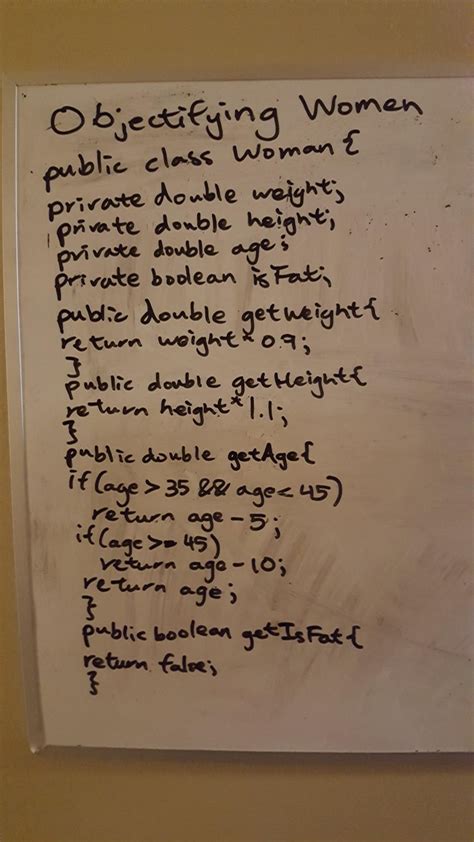 Objectifying Women
public class Woman {
private double weight;
private double height;
private double age;
private boolean isFat;
public double getWeight{
return weight * 0.9;
}
public double getHeight{
return height * 1.1;
}
public double getAge{
if (age > 35 && age < 45)
return age - 5;
if (age >= 45)
return age - 10;
return age;
}
public boolean getIsFat{
return false;
}